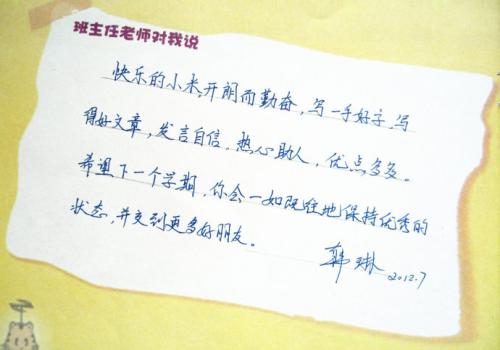 班主任老师对我说
快乐的小米,开朗而勤奋,写一手好字,写
得好文章,发言自信,热心助人,优点多多。
希望下一个学期,你会一如既往地保持优秀的
状态,并交到更多好朋友。
韩琳
2012.7